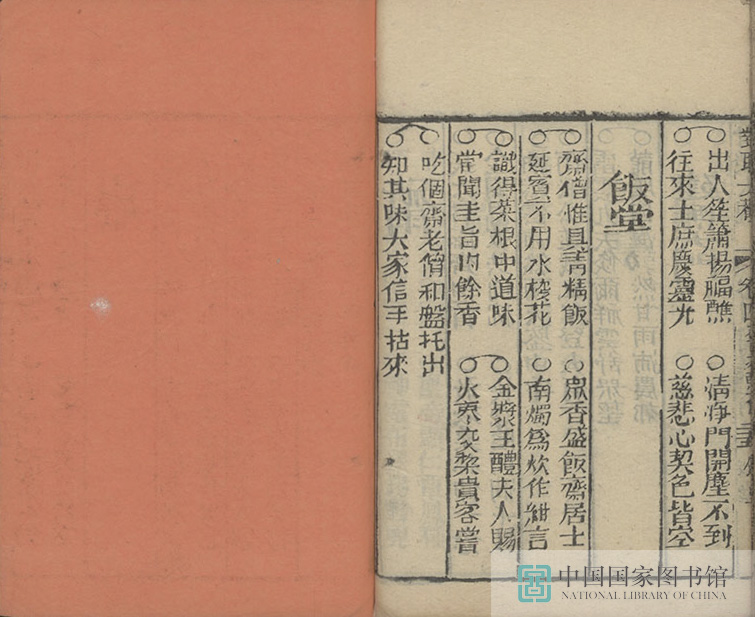 出入笙簫揚福醮
往來士庶慶靈光
清淨門開塵不到
慈悲心契色皆空
飯堂
齋僧惟具菁精飯
延賓不用水梭花
眾香盛飯齋居士
南燭為炊作紺言
識得菜根中道味
常聞圭旨內餘香
金漿玉醴夫人賜
火棗交棃貴客嘗
吃個齋老僧和盤托出
知其味大家信手拈來
中国国家图书馆
NATIONAL LIBRARY OF CHINA